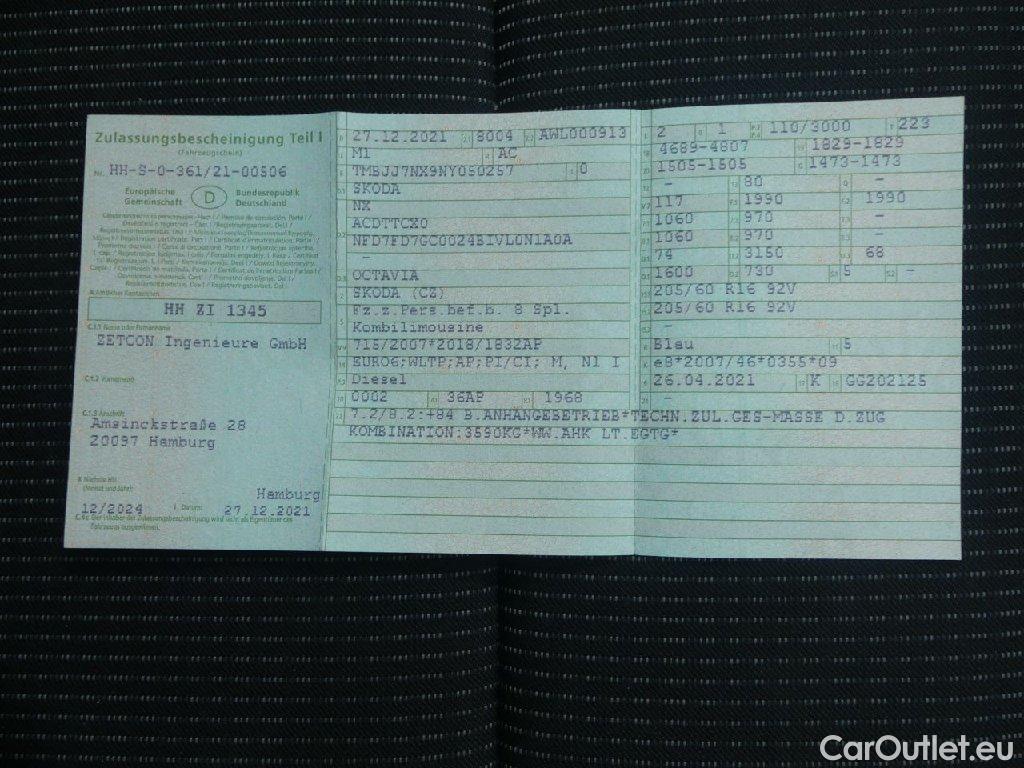 Zulassungsbescheinigung Teil I
(Fahrzeugschein)
Nr. HH-S-0-361/21-00506
Europäische Gemeinschaft
D
Bundesrepublik Deutschland
Amtliches Kennzeichen
HH ZI 1345
C.1.1 Name oder Firmenname
ZETCON Ingenieure GmbH
C.1.2 Vorname(n)
C.1.3 Anschrift
Amsinckstraße 28
20097 Hamburg
Nächste HU
(Monat und Jahr)
12/2024
Hamburg
I Datum: 27.12.2021
C.4c Der Inhaber der Zulassungsbescheinigung wird nicht als Eigentümer des
Fahrzeugs ausgewiesen.
27.12.2021 8004 AWL000913
M1 AC
TMBJJ7NX9NY050257 0
SKODA
NX
ACDTTCX0
NFD7FD7GC0024BIVL0N1A0A
-
OCTAVIA
SKODA (CZ)
Fz.z.Pers.bef.b. 8 Spl.
Kombilimousine
715/2007*2018/1832AP
EURO6;WLTP;AP;PI/CI; M, N1 I
Diesel
0002 36AP 1968
7.2/8.2:+84 B.ANHÄNGEBETRIEB*TECHN.ZUL.GES-MASSE D.ZUG
KOMBINATION:3590KG*WW.AHK LT.EGTG*
2 1 110/3000 223
4689-4807 1829-1829
1505-1505 1473-1473
- 80 -
117 1990 1990
1060 970 -
1060 970 -
74 3150 68
1600 730 5 -
205/60 R16 92V
205/60 R16 92V
-
Blau 5
e8*2007/46*0355*09
26.04.2021 K GG202125
CarOutlet.eu